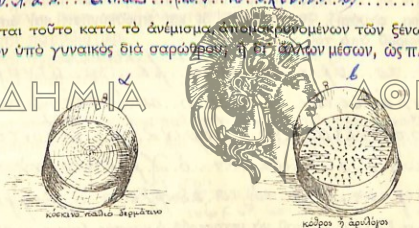 ται τοῦτο κατὰ τὸ ἀνέμισμα, ἀπομακρυνομένων τῶν ξένω
ν ὑπὸ γυναικὸς διὰ σαρώθρου, ἢ δι' ἄλλων μέσων, ὡς π.
α β
ΔΗΜΙΑ ΑΘΗ
κόσκινο παλιὸ δερμάτινο
κόθρος ἢ ἀριλόγος